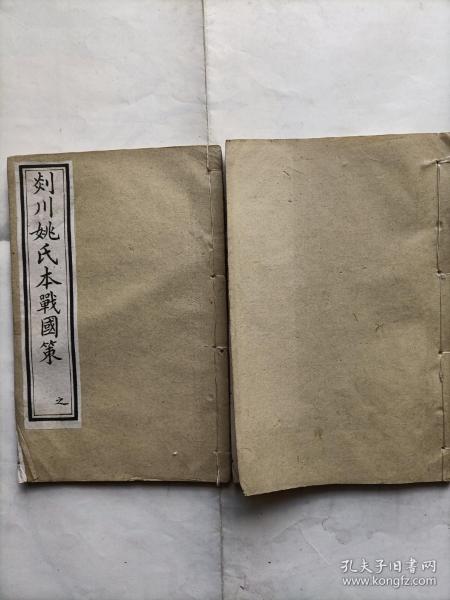 剡川姚氏本戰國策
之
孔夫子旧书网
www.kongfz.com